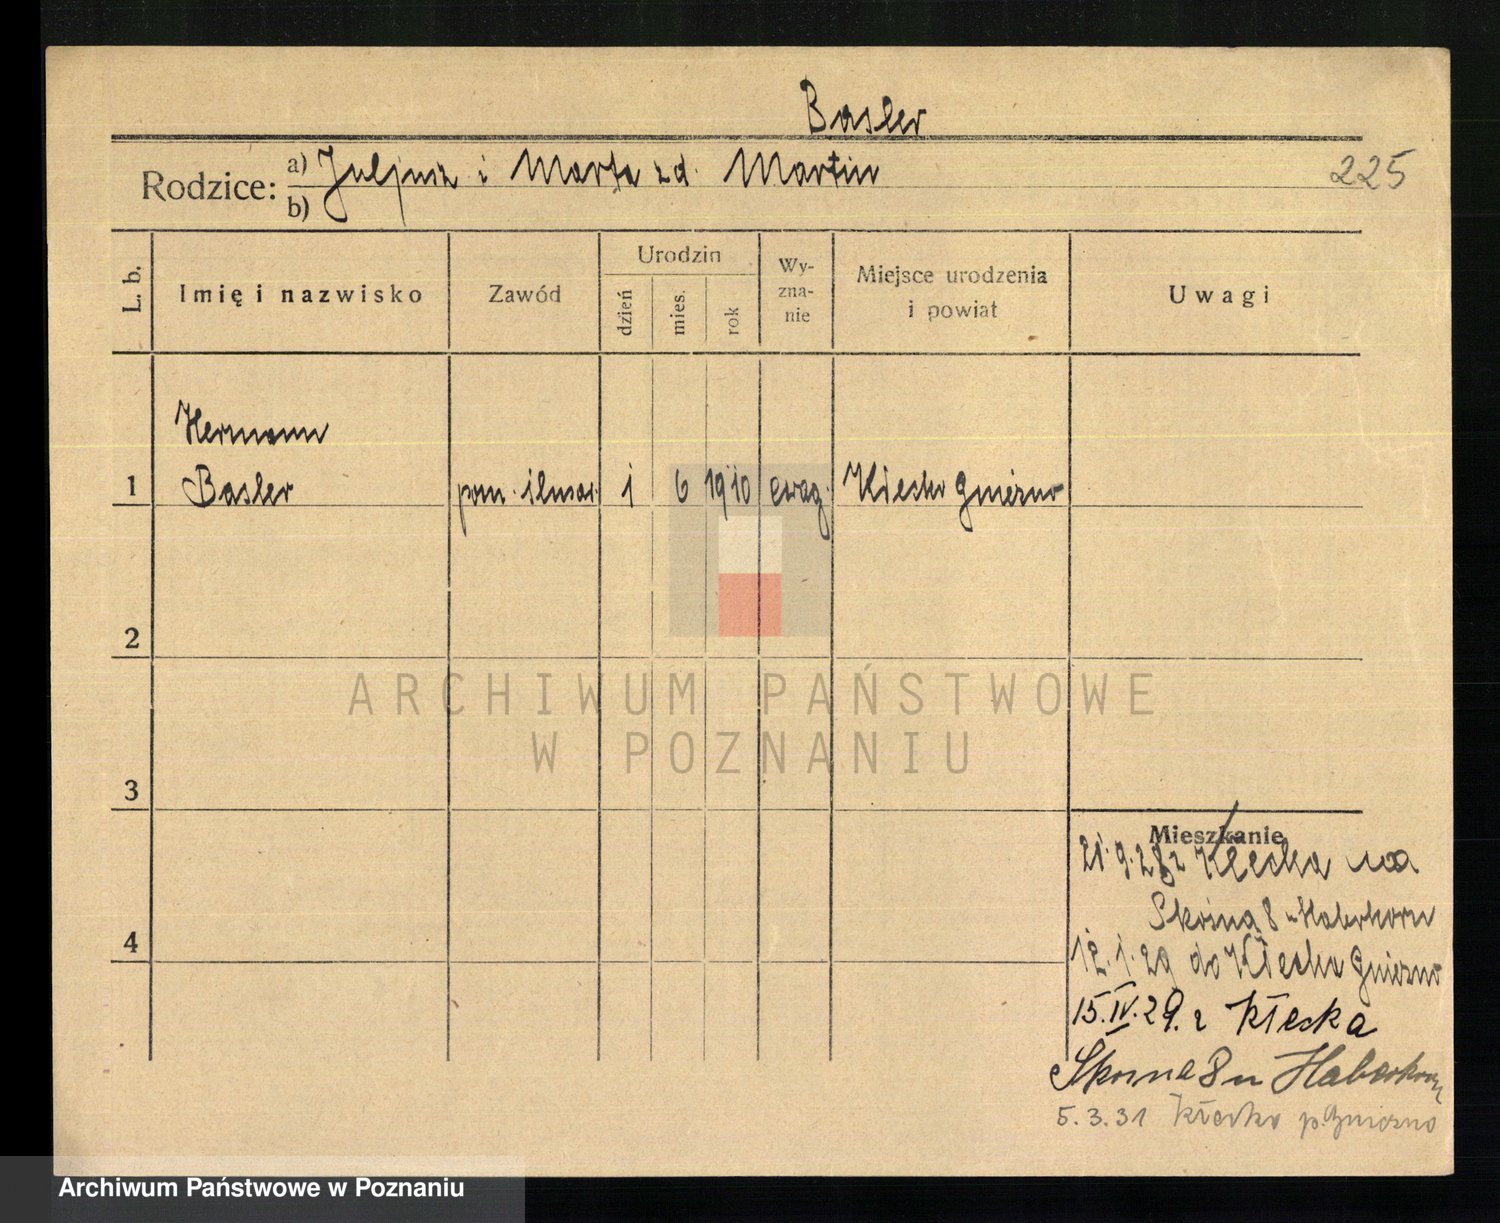 Basler
Rodzice: a) Juljusz i Marta zd. Martin
b)
225
L. b.
Imię i nazwisko
Zawód
Urodzin
dzień
mies.
rok
Wy-
zna-
nie
Miejsce urodzenia
i powiat
Uwagi
Hermann
1 Basler pom. ślusar. 1 6 1910 ewag. Kłecko Gniezno
2
3
4
ARCHIWUM PAŃSTWOWE
W POZNANIU
Mieszkanie
21.9.28 z Kłecka na
Skośna 8 u Haberkorn
12.1.29 do Kłecka Gniezno
15.IV.29. z Kłecka
Skośna 8 u Haberkorn
5.3.31 Kłecko p. Gniezno
Archiwum Państwowe w Poznaniu